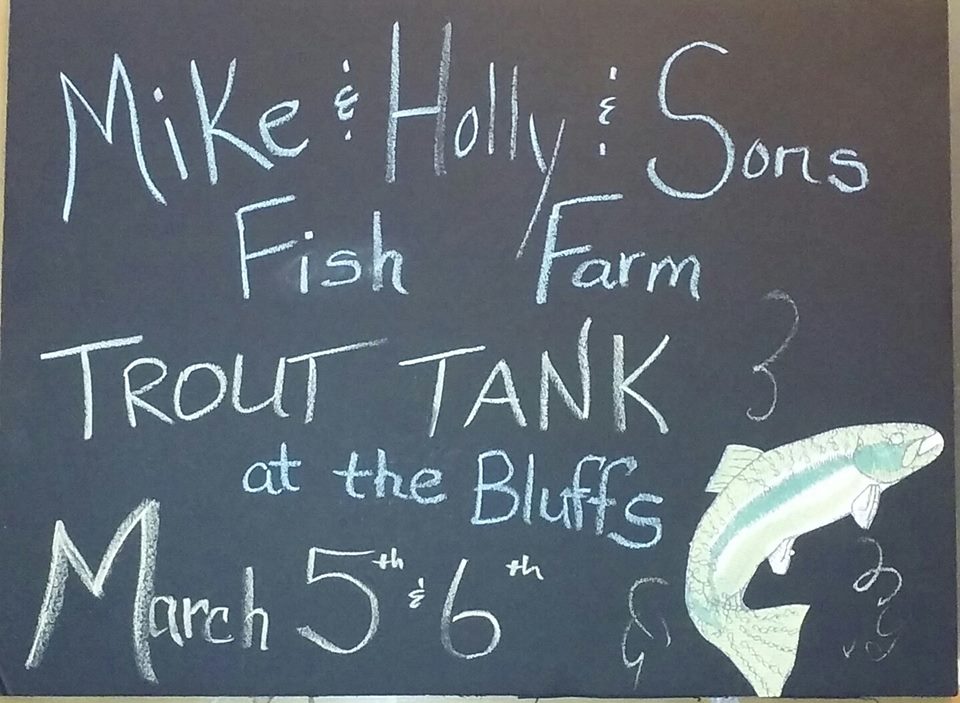 Mike & Holly & Sons
Fish Farm
TROUT TANK
at the Bluffs
March 5th & 6th